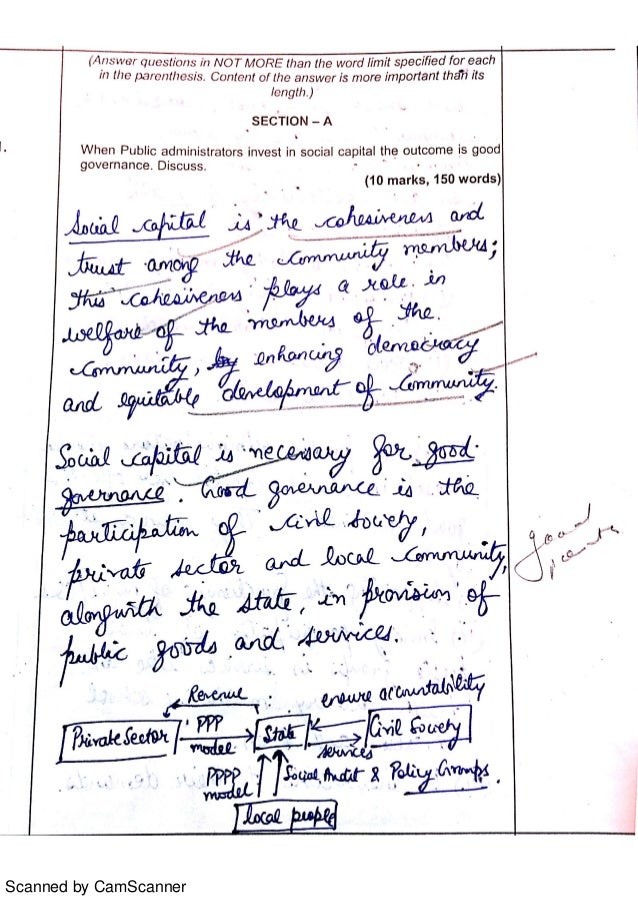 (Answer questions in NOT MORE than the word limit specified for each
in the parenthesis. Content of the answer is more important than its
length.)
SECTION – A
When Public administrators invest in social capital the outcome is good
governance. Discuss.
(10 marks, 150 words)
Social capital is the cohesiveness and
trust among the community members;
this cohesiveness plays a role in
welfare of the members of the
community, by enhancing democracy
and equitable development of community.
Social capital is necessary for good
governance. Good governance is the
participation of civil society,
private sector and local community,
alongwith the state, in provision of
public goods and services.
good
Revenue
ensure accountability
Private Sector
PPP
model
State
Civil Society
services
PPPP
model
Social Audit & Policy Groups.
local people
Scanned by CamScanner